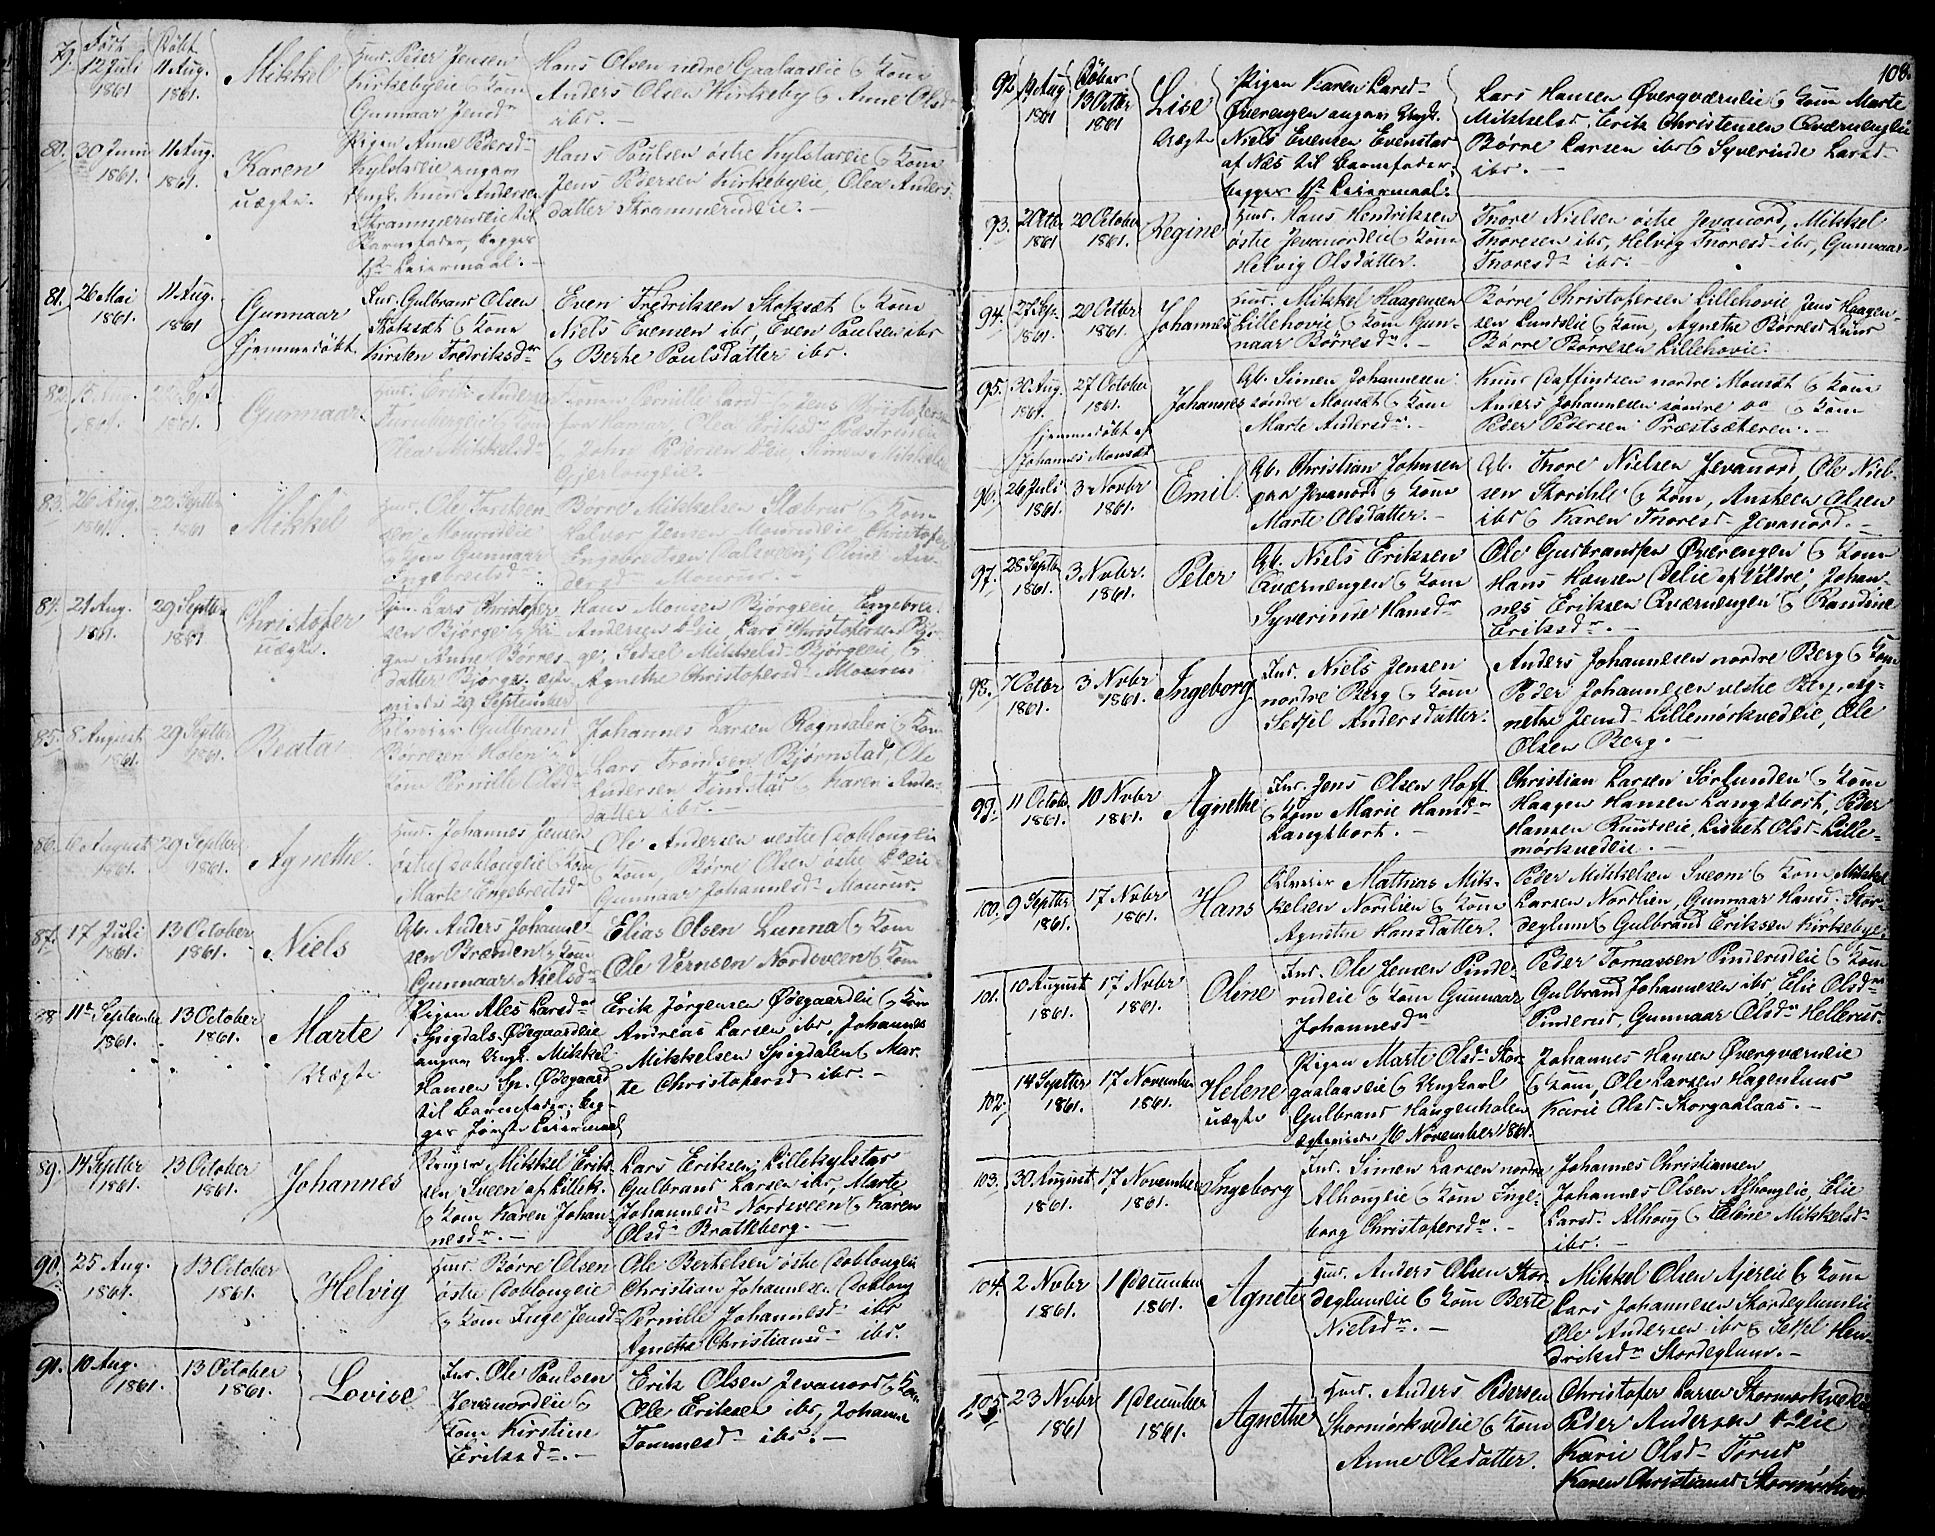 Født Døbt
79. 12 Juli 1861 11 Aug. 1861. Mikkel
Hus. Peder Jensen
Kirkebyeie & Kone
Gunnaar Jensdr
Hans Olsen nedre Gaalaaseie & Kone
Anders Olsen Kirkeby & Anne Olsdr
ibd. –
80. 30 Juni 1861. 11 Aug. 1861. Karen
uægte.
Pigen Anne Pedersd-
Kylstadeie angav
Ungk. Knud Andersen
Strammerudeie til
Barnefader, begges
1ste Leiermaal. –
Hans Paulsen østre Kylstadeie & Kone
Jens Pedersen Kirkebyeie, Olea Anders-
datter Strammerudeie. –
81. 26 Mai 1861. 11 Aug. 1861 Gunnaar
Hjemmedøbt.
Ins. Gulbrand Olsen
Stoksæt & Kone
Kirsten Fredriksdr
Even Fredriksen Stoksæt & Kone
Niels Evensen ibd, Even Paulsen ibd
& Berthe Paulsdatter ibd.
82. 1861. 1861. Gunnaar
Hus. Erik Andersen
& Kone
Olea Mikkelsd-
Pernille Larsd-, Jens Christofersen
fra Hamar, Olea Eriksdr
& John Pedersen Eie, Simen Mikkelsen
83. 26 Aug. 1861. 22 Septbr 1861 Mikkel
Hus. Ole Torsteen-
sen Mourudeie
& Kone Gunnaar
Engebretsd-
Børre Mikkelsen Stæbrud & Kone
Halvor Jensen Mourudeie, Christofer
Engebretsen Dalsveen, Oline An-
dersd- Mourud. –
84. 21 Aug. 1861. 29 Septbr 1861 Christofer
uægte.
Lars Christofer-
sen Bjørge & Pi-
gen Anne Børres-
datter Bjørge. Ægte-
viede 29 September
Hans Monsen Bjørgeeie, Engebret
Andersen Eie, Lars Christofersen Bjør-
ge, Sedsel Mikkelsd- Bjørgeeie, &
Agnethe Christofersd- Mourud
85. 8 August 1861. 29 Septbr 1861. Beata
Selveier Gulbrand
Børresen Holen &
Kone Pernille Olsdr
Johannes Larsen Rognsalen & Kone
Lars Trondsen Bjørnstad, Ole
Andersen Findstad & Karen Anders-
datter ibd.
86. 6 August 1861. 29 Septbr 1861. Agnethe.
Hus. Johannes Jensen
østre Doblougeie & Kone
Marte Engebretsdr
Ole Andersen vestre Doblougeie
& Kone, Børre Olsen østre Eie
Gunnaar Johannesd- Mourud.
87. 17 Juli 1861. 13 October 1861. Niels
Gb. Anders Johannes-
sen Brænden & Kone
Gunnaar Nielsdr
Elias Olsen Lunna & Kone
Ole Vernsen Nordsveen & Kone
88. 11te September 1861. 13 October 1861. Marte
Uægte
Pigen Ales Larsdr
Spigdals-Ødegaardeie
angav Ungk. Mikkel
Hansen Sp. Ødegaard
til Barnefader, beg-
ges første Leiermaal
Erik Jørgensen Ødegaardeie & Kone
Andreas Larsen ibd, Johannes
Mikkelsen Spigdalen & Mar-
te Christofersd ibd. –
89. 14 Septbr 1861. 13 October 1861. Johannes
Mikkel Erik-
sen Sveen af Lillek.
& Kone Karen Johan-
nesdr. –
Lars Eriksen Lillekylstad
Gulbrand Larsen ibd, Marte
Johannesd- Nordsveen & Karen
Olsd- Brattberg. –
90. 25 Aug. 1861. 13 October 1861. Helvig
Hus. Børre Olsen
østre Doblougeie
& Kone Inge Jensd-
Ole Berthelsen østre Doblougeie
Christian Johannesen Dobloug
Pernille Johannesd- ibd
Agnethe Christiansd- ibd.
91. 10 Aug. 1861. 13 October 1861. Lovise
Ins. Ole Paulsen
Jevanordeie &
Kone Kirstine
Eriksdr. –
Erik Olsen Jevanord & Kone
Ole Eriksen ibd, Johanne
Tommesd- ibd. –
108.
92. 19 Aug 1861 Døbt 13 Octbr 1861 Lise
Uægte
Pigen Karen Larsd-
Øverengen angav Ungk.
Niels Evensen Evenstad
af Næs til Barnefader.
begges 1ste Leiermaal.
Lars Hansen Øvergværneie & Kone Marte
Mikkelsd, Erik Christensen Qværnengeie
Børre Larsen ibd & Syverinde Larsd-
ibd. –
93. 2 Octbr 1861 20 October 1861. Regine
Hus. Hans Hendriksen
østre Jevanordeie & Kone
Helvig Olsdatter.
Thore Nielsen østre Jevanord, Mikkel
Thoresen ibd, Helvig Thoresd- ibd, Gunnaar
Thoresdr ibd.
94. 27 Sept. 1861. 20 Octbr 1861. Johannes
Hus. Mikkel Haagensen
Lillehovie & Kone Gun-
naar Børresdr. –
Børre Christofersen Lillehovie, Jens Haagen-
sen Lundeie & Kone, Agnethe Børresd Lund
Børre Børresen Lillehovie.
95. 30 Aug. 1861. 27 October 1861. Johannes
Hjemmedøbt af
Johannes Monsæt
Gb. Simen Johannesen
søndre Monsæt & Kone
Marte Andersdr. –
Knud Daffindsen nordre Monsæt & Kone
Anders Johannesen søndre do & Kone
Peder Pedersen Præstsæteren. –
96. 26 Juli 1861. 3 Novbr 1861. Emil.
Gb. Christian Johnsen
paa Jevanord & Kone
Marte Olsdatter. –
Gb. Thore Nielsen Jevanord, Ole Niel-
sen Skorihle & Kone, Anstheen Olsen
ibd & Karen Thoresd- Jevanord. –
97. 28 Septbr 1861. 3 Novbr. 1861. Peter
Gb. Niels Eriksen
Qværnengen & Kone
Syverine Hansdr
Ole Gulbrandsen Øverengen & Kone
Hans Hansen Delie af Vildre, Johan-
nes Eriksen Qværnengen & Randine
Eriksdr. –
98. 7 Octbr 1861. 3 Novbr 1861. Ingeborg.
Ins. Niels Jensen
nordre Berg & Kone
Sedsel Andersdatter.
Anders Johannesen nordre Berg & Kone
Peder Johannesen vestre Berg, Ag-
nethe Jensd- Lillemørkvedeie, Ole
Olsen Berg. –
99. 11 Octob. 1861. 10 Novbr 1861. Agnethe
Ins. Jens Olsen Hoff
& Kone Marie Hansdr
Langtbort. –
Christian Larsen Sørlunden & Kone
Haagen Hansen Langtbort, Peder
Hansen Rundeie, Lisbet Olsd- Lille-
mørkvedeie. –
100. 9 Septbr 1861. 17 Novbr 1861. Hans
Selveier Mathias Mik-
kelsen Nordlien & Kone
Agnethe Hansdatter.
Peder Mikkelsen Sveom & Kone, Mikkel
Larsen Nordlien, Gunnaar Hansd- Skor-
deglum & Gulbrand Eriksen Kirkebye.
101. 10 August 1861. 17 Novbr 1861. Oline
Ins. Ole Jensen Pinde-
rudeie & Kone Gunnaar
Johannesdr
Peder Tomassen Pinderudeie & Kone
Gulbrand Johannesen ibd, Elie Olsdr
Pinderud, Gunnaar Olsdr Hellerud.
102. 14 Septbr 1861. 17 November 1861. Helene
uægte
Pigen Marte Olsd- Skor-
gaalaaseie & Ungkarl
Gulbrand Haugenhalen
Ægteviede 16 November 1861.
Johannes Hansen Øvergværneie
& Kone, Ole Larsen Hagenlund
Karie Olsd- Skorgaalaas. –
103. 30 August 1861. 17 November 1861. Ingeborg
Ins. Simen Larsen nordre
Alhougeie & Kone Inge-
borg Christofersdr. –
Johannes Christiansen
Johannes Olsen Alhougeie, Elie
Larsd- Alhoug & Eline Mikkelsd-
ibd. –
104. 2 Novbr 1861. 1 December 1861. Agnete
Hus. Anders Olsen Skor-
deglumeie & Kone Berte
Nielsdr. –
Mikkel Olsen Ajereie & Kone
Lars Johannesen Skordeglumeie
Ole Andersen ibd & Setsel Hen-
driksdr Skordeglum. –
105. 23 Novbr 1861 1 December 1861. Agnethe
Hus. Anders Pedersen
Skormørkvedeie & Kone
Anne Olsdatter.
Christofer Larsen Skormørkvedeie
Peder Andersen Eie
Karie Olsd- Torud
Karen Christiansd- Skormørkved